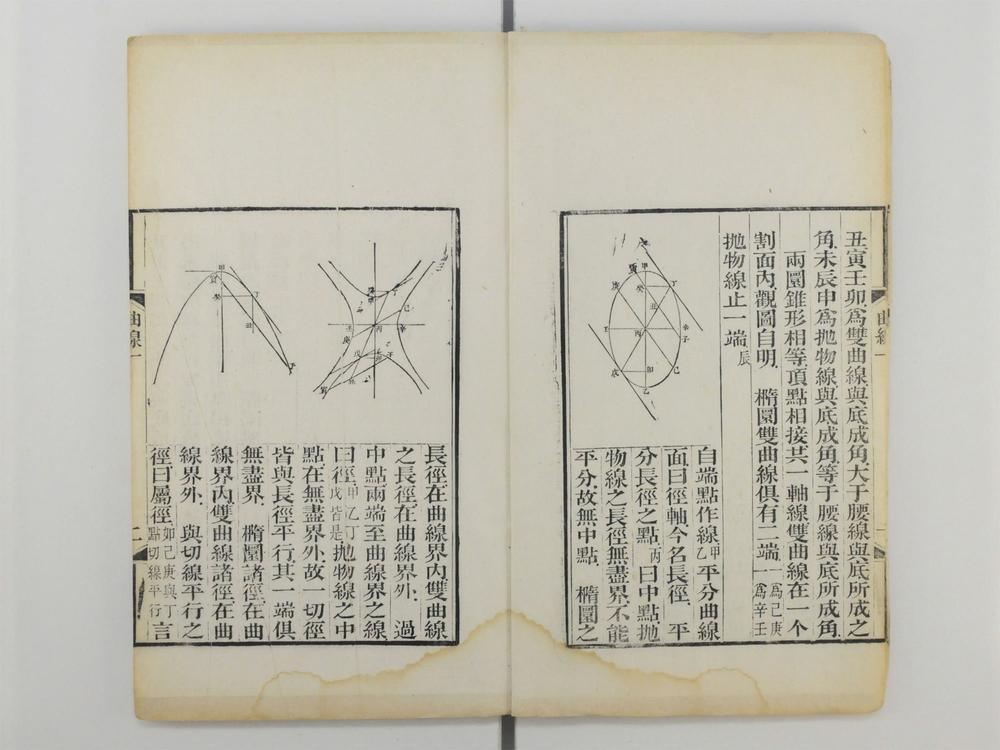 丑寅壬卯爲雙曲線與底成角大于腰線與底所成之
角未辰申爲抛物線與底成角等于腰線與底所成角
兩圜錐形相等頂點相接共一軸線雙曲線在一个
割面內觀圖自明 橢圜雙曲線俱有二端一爲己庚一爲辛壬
抛物線止一端辰
自端點作線甲乙平分曲線
面曰徑軸今名長徑 平
分長徑之點丙曰中點抛
物線之長徑無盡界不能
平分故無中點 橢圜之
長徑在曲線界內雙曲線
之長徑在曲線界外 過
中點兩端至曲線界之線
曰徑甲乙丁戊皆是抛物線之中
點在無盡界外故一切徑
皆與長徑平行其一端俱
無盡界 橢圜諸徑在曲
線界內雙曲線諸徑在曲
線界外 與切線平行之
徑曰屬徑如己庚與丁點切線平行言
曲線一
二